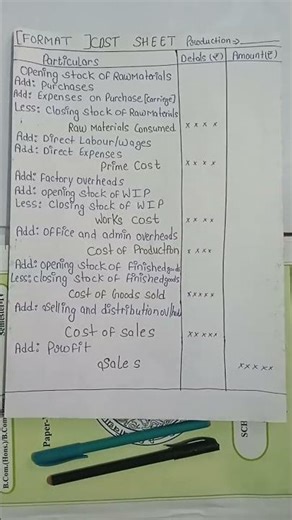 [FORMAT ]COST SHEET Production:-____
Particulars Detals (₹) Amount(₹)
Opening stock of RawMaterials
Add: Purchases
Add: Expenses on Purchase [carringe]
Less: Closing stock of RawMaterials
Raw Materials Consumed x x x x
Add: Direct Labour/wages
Add: Direct Expenses
Prime Cost x x x x
Add: Factory overheads
Add: opening stock of WIP
Less: Closing stock of WIP
Works Cost x x x x
Add: Office and admin overheads
Cost of Production x x x x
Add: opening stock of finishedgoods
Less: closing stock of finishedgoods
Cost of Goods sold x x x x x
Add: selling and distribution
Cost of sales x x x x x
Add: Profit
Sales x x x x x
Semester-VI
B.Com.(Hons.)/B.Com
Paper-
SCH